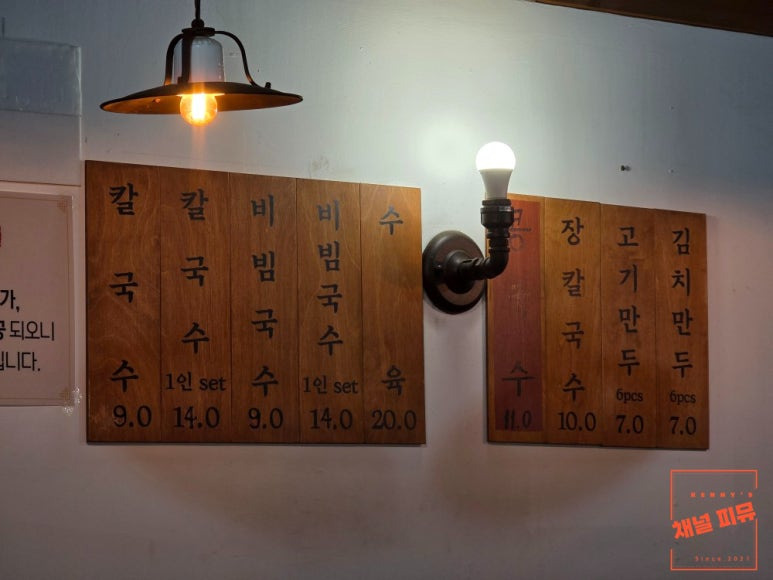 가,
공 되오니
입니다.
칼국수
9.0
칼국수
1인 set
14.0
비빔국수
9.0
비빔국수
1인 set
14.0
수육
20.0
수
11.0
장칼국수
10.0
고기만두
6pcs
7.0
김치만두
6pcs
7.0
KENNY'S
채널 피뮤
Since.2021